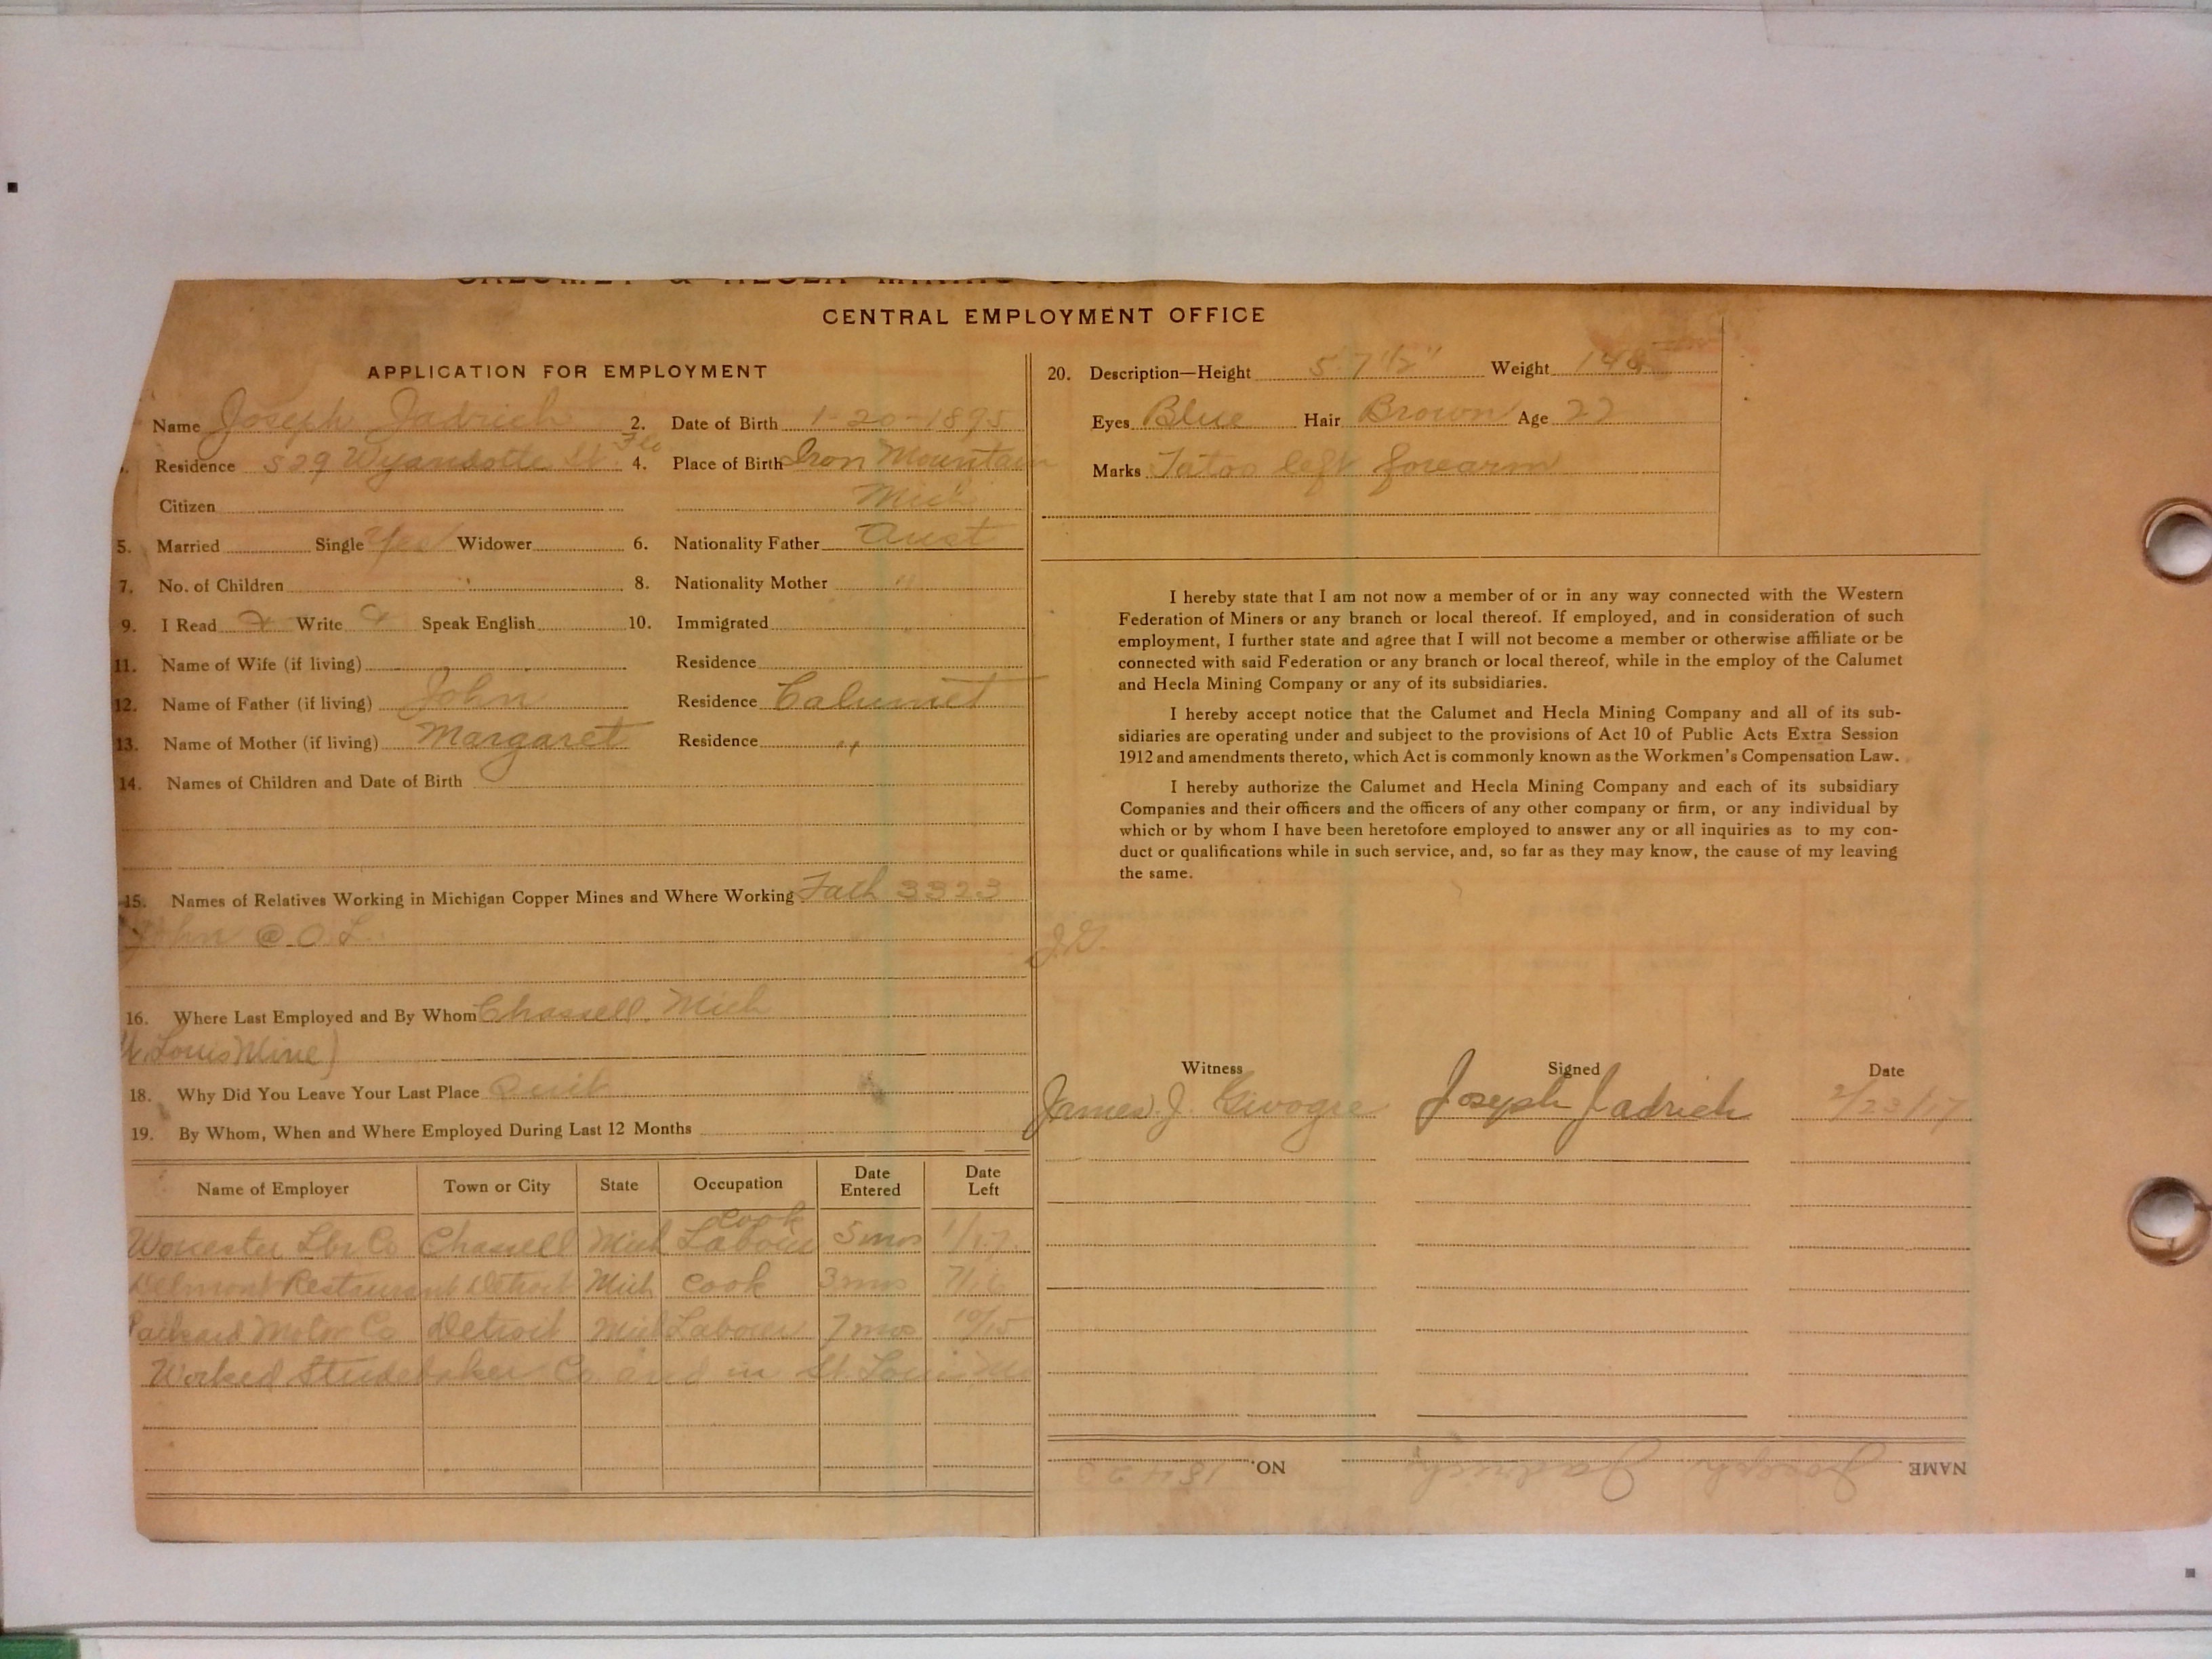 CALUMET & HECLA MINING
CENTRAL EMPLOYMENT OFFICE
APPLICATION FOR EMPLOYMENT
Name Joseph Jadrich 2. Date of Birth 1-20-1895
Residence 529 Wyandotte St 4. Place of Birth Iron Mountain
Citizen Mich
5. Married Single Yes Widower 6. Nationality Father Aust
7. No. of Children " 8. Nationality Mother "
9. I Read Write Speak English 10. Immigrated
11. Name of Wife (if living) Residence
12. Name of Father (if living) John Residence Calumet
13. Name of Mother (if living) Margaret Residence "
14. Names of Children and Date of Birth
15. Names of Relatives Working in Michigan Copper Mines and Where Working Fath 3323
John @ O.L.
16. Where Last Employed and By Whom Chassell, Mich
Louis Mine)
18. Why Did You Leave Your Last Place Quit
19. By Whom, When and Where Employed During Last 12 Months
Name of Employer Town or City State Occupation Date Entered Date Left
cook
Worcester Lbr Co Chassell Mich Labour 5 mos 1/17
Delmont Restaurant Detroit Mich cook 3 mos
Packard Motor Co Detroit Mich Labour 7 mos 10/15
Worked Studebaker Co and in St. Louis
20. Description—Height 5' 7 1/2" Weight 148
Eyes Blue Hair Brown Age 22
Marks Tatoo left forearm
I hereby state that I am not now a member of or in any way connected with the Western
Federation of Miners or any branch or local thereof. If employed, and in consideration of such
employment, I further state and agree that I will not become a member or otherwise affiliate or be
connected with said Federation or any branch or local thereof, while in the employ of the Calumet
and Hecla Mining Company or any of its subsidiaries.
I hereby accept notice that the Calumet and Hecla Mining Company and all of its sub-
sidiaries are operating under and subject to the provisions of Act 10 of Public Acts Extra Session
1912 and amendments thereto, which Act is commonly known as the Workmen's Compensation Law.
I hereby authorize the Calumet and Hecla Mining Company and each of its subsidiary
Companies and their officers and the officers of any other company or firm, or any individual by
which or by whom I have been heretofore employed to answer any or all inquiries as to my con-
duct or qualifications while in such service, and, so far as they may know, the cause of my leaving
the same.
Witness Signed Date
James J. Joseph Jadrich 2/23/17
NAME Joseph Jadrich NO.